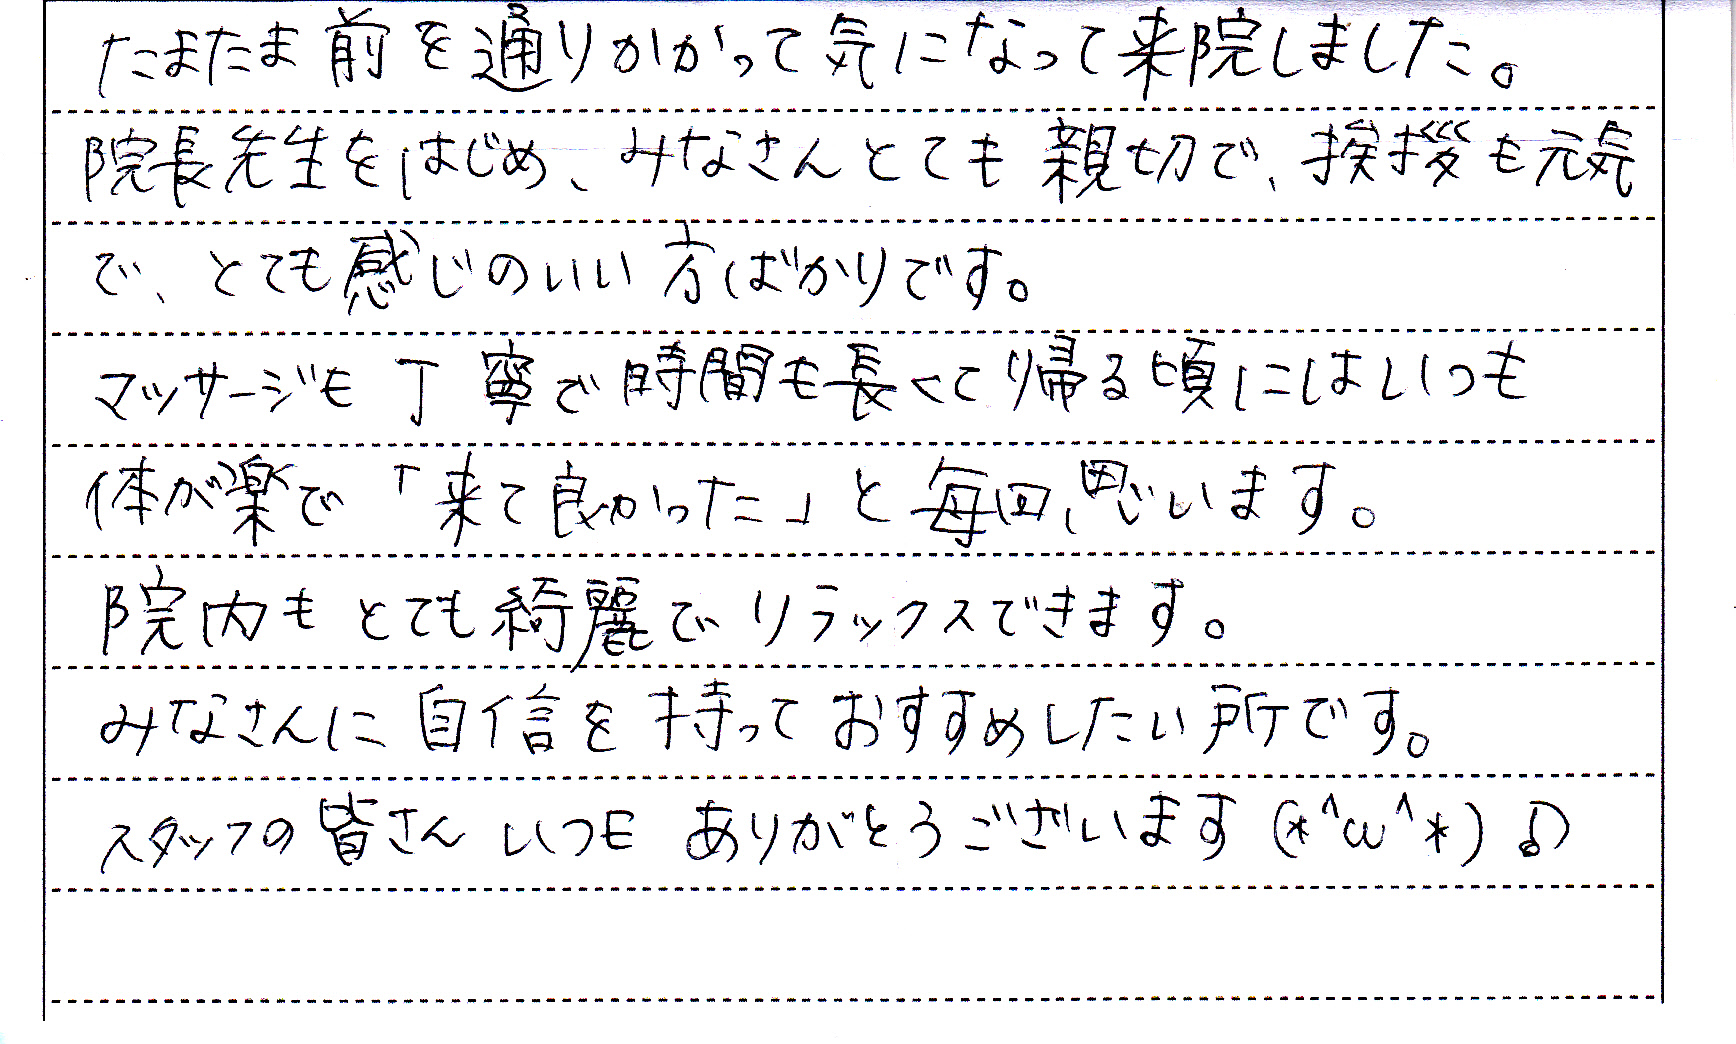 たまたま前を通りかかって気になって来院しました。
院長先生をはじめ、みなさんとても親切で、挨拶も元気
で、とても感じのいい方ばかりです。
マッサージも丁寧で時間も長くて帰る頃にはいつも
体が楽で「来て良かった」と毎回、思います。
院内もとても綺麗でリラックスできます。
みなさんに自信を持っておすすめしたい所です。
スタッフの皆さんいつもありがとうございます(*^ω^*)♪